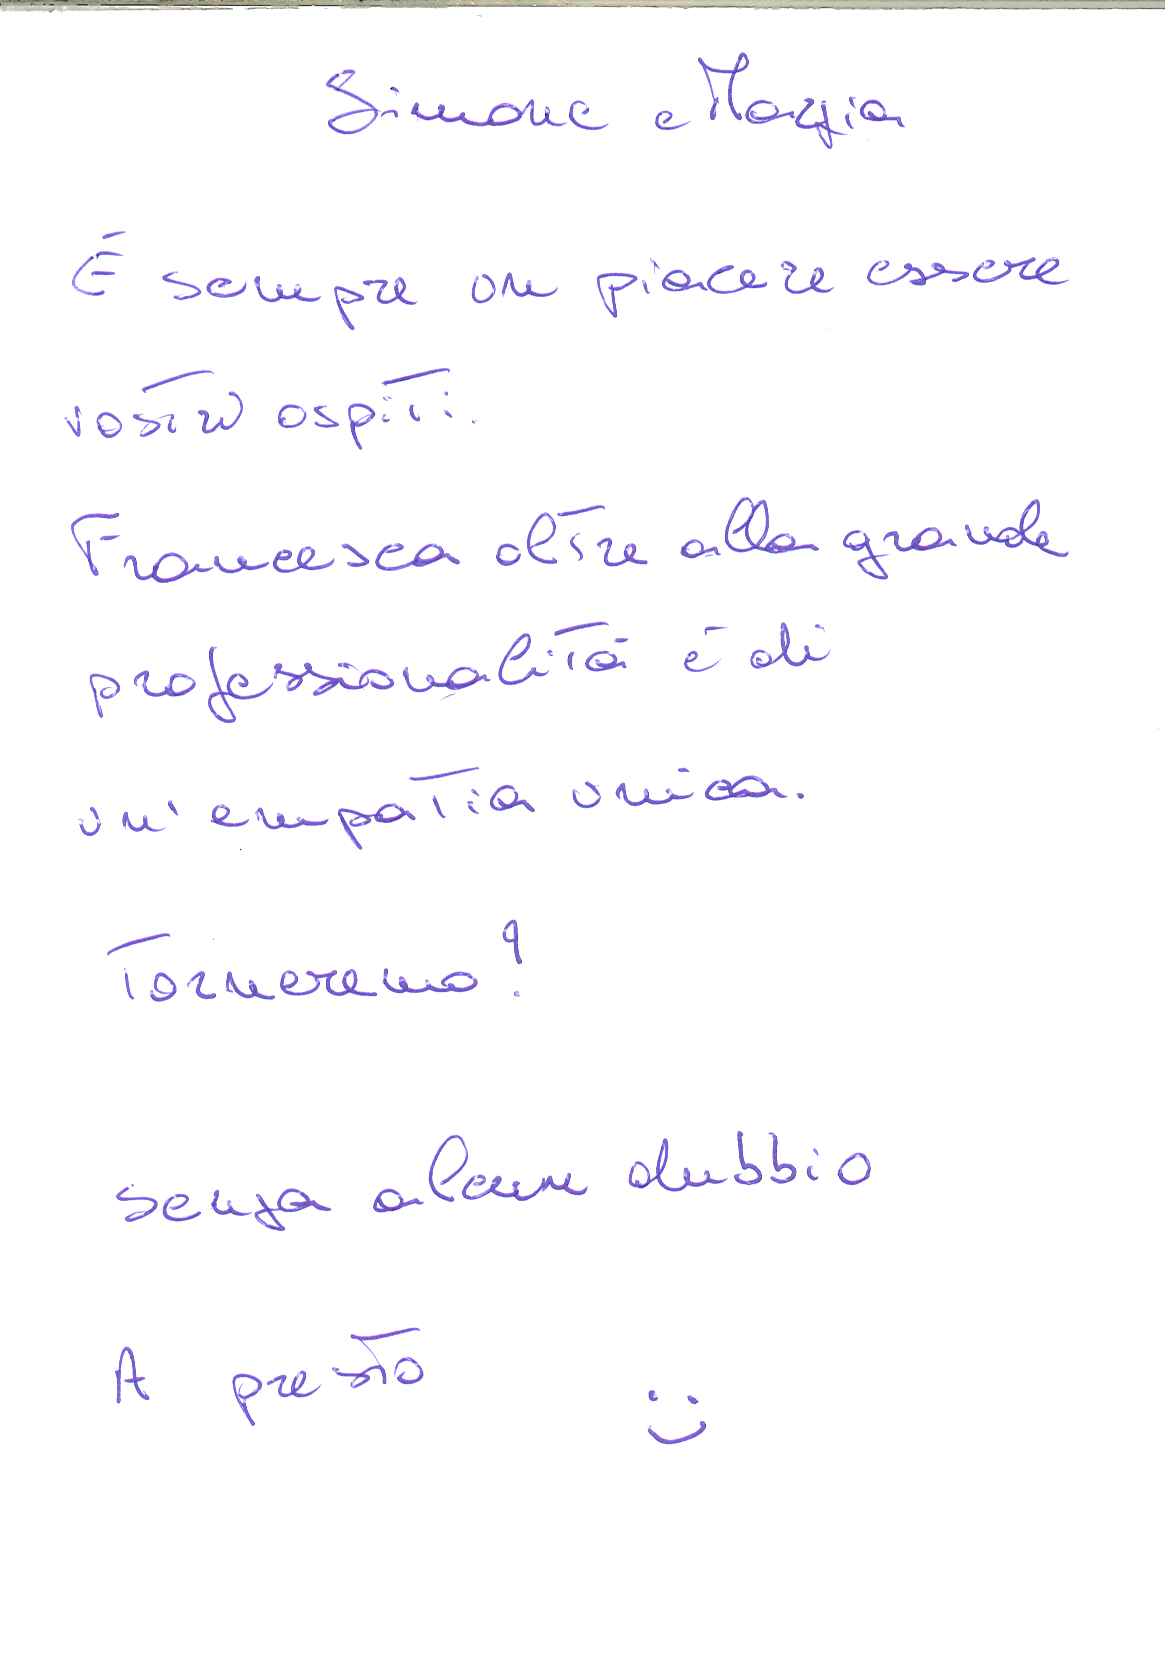 Simone e Marzia
È sempre un piacere essere
vostri ospiti.
Francesca oltre alla grande
professionalità è di
un'empatia unica.
Torneremo!
senza alcun dubbio
A presto :)